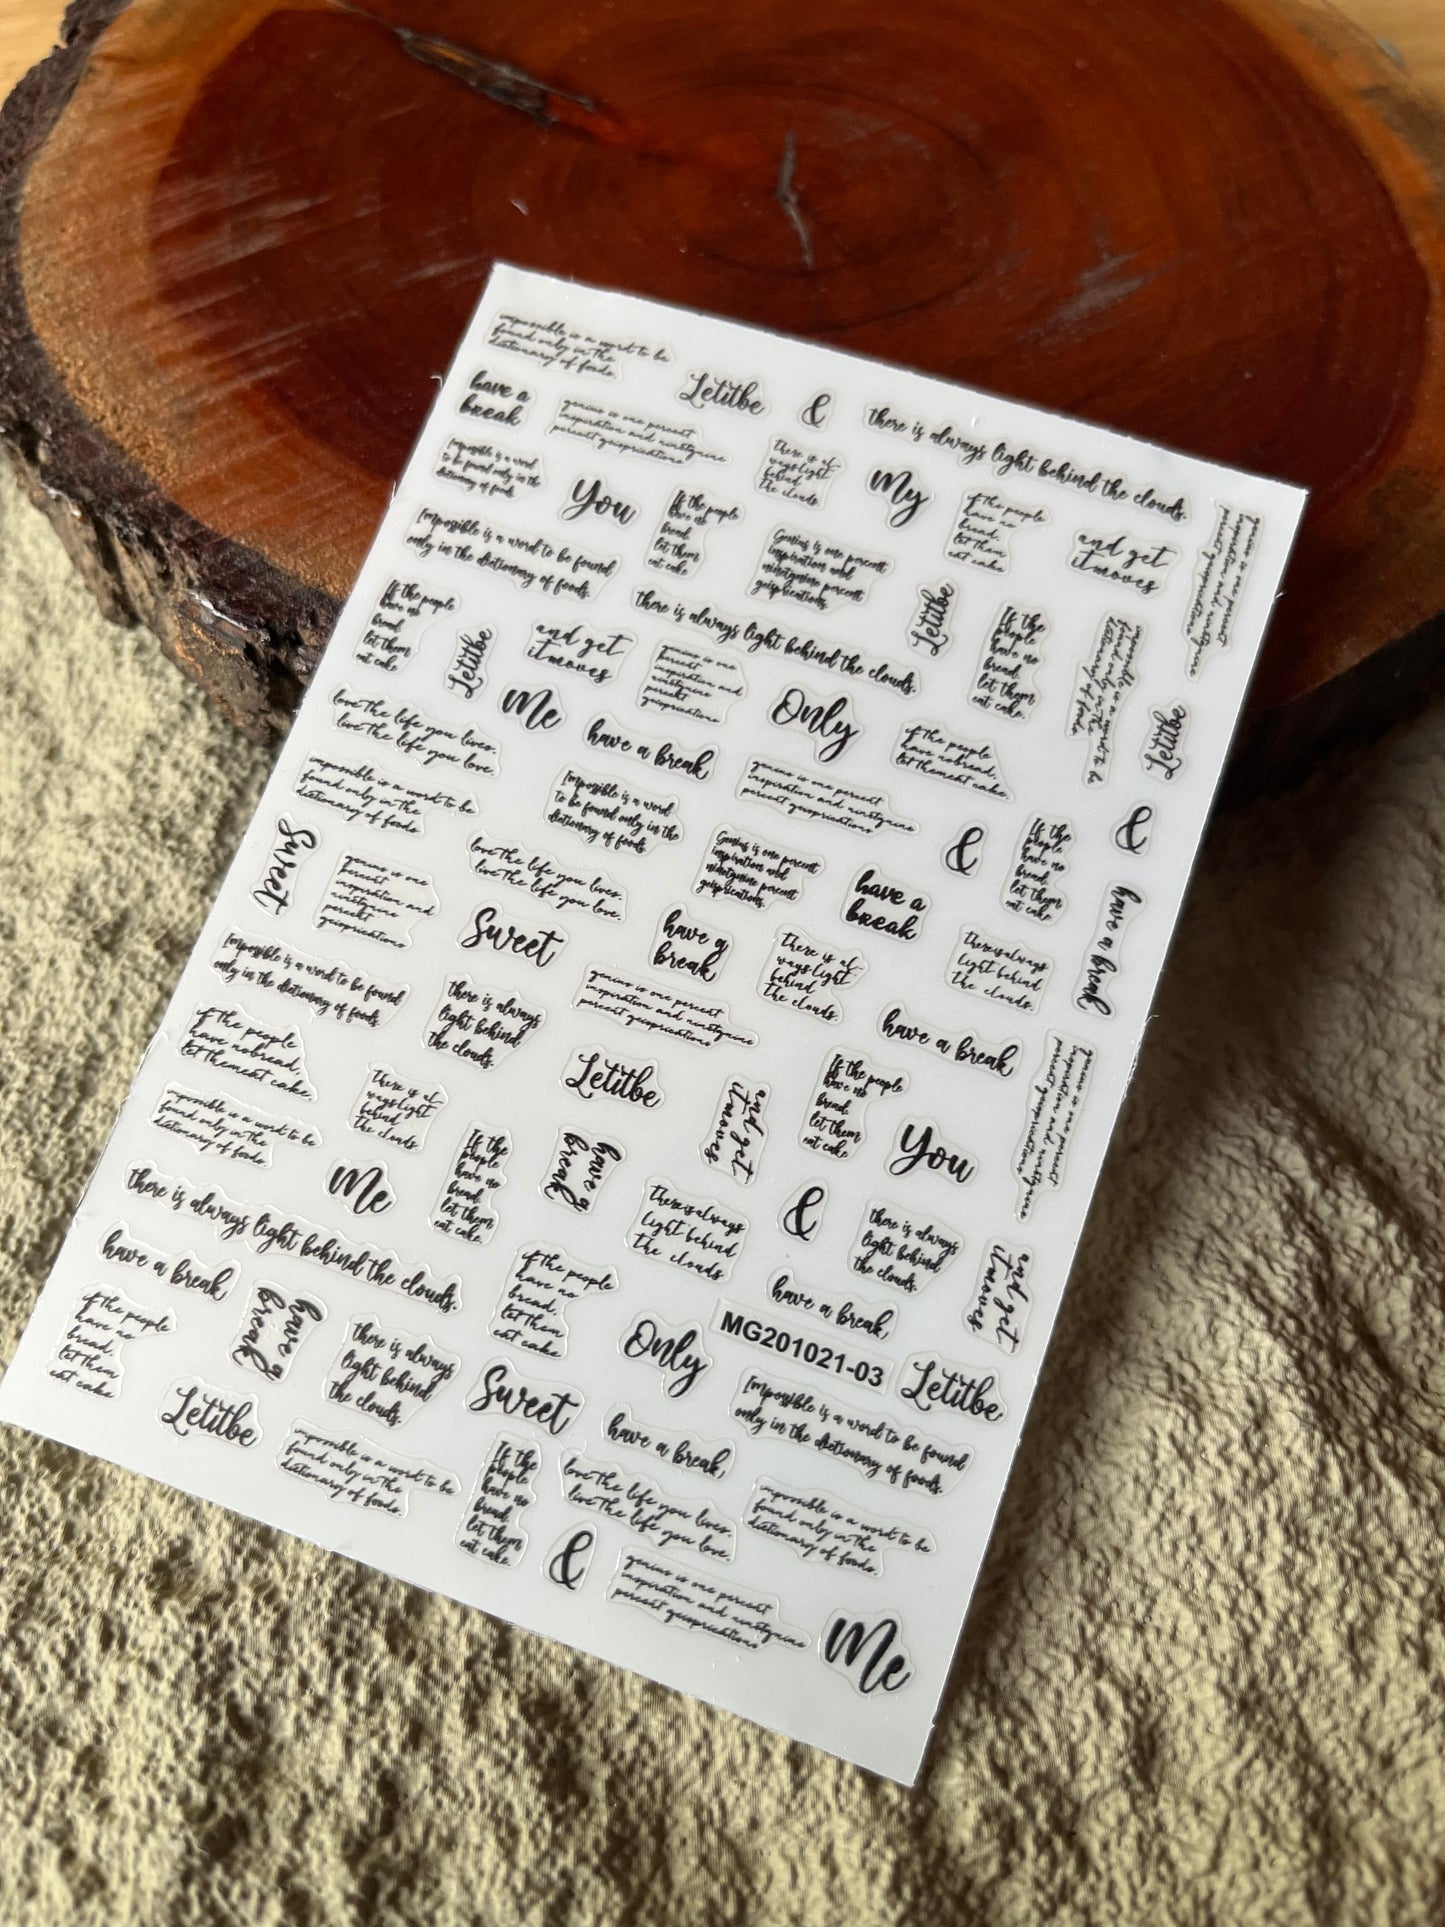 impossible is a word to be
found only in the
dictionary of foods.
Letitbe
&
there is always light behind the clouds.
have a
break
genius is one percent
inspiration and ninetynine
percent geisprications
there is al-
ways light
behind
the clouds.
My
if the people
have no
bread,
let them
eat cake.
Impossible is a word
to be found only in the
dictionary of foods
You
If the people
have no
bread.
let them
eat cake
Genius is one percent
inspiration and
ninetynine percent
geisprications.
and get
it moves
Impossible is a word to be found
only in the dictionary of foods.
there is always light behind the clouds.
Letitbe
If the
people
have no
bread.
let them
eat cake.
If the people
have no
bread.
let them
eat cake.
Letitbe
and get
it moves
genius is one
percent
inspiration and
ninetynine
percent
geisprications
Only
if the people
have nobread,
let themeat cake.
Letitbe
love the life you lives.
live the life you love.
Me
have a break,
genius is one percent
inspiration and ninetynine
percent geisprications
&
If the
people
have no
bread.
let them
eat cake.
&
impossible is a word to be
found only in the
dictionary of foods
Impossible is a word
to be found only in the
dictionary of foods
Genius is one percent
inspiration and
ninetynine percent
geisprications.
have a
break
have a break
Sweet
genius is one
percent
inspiration and
ninetynine
percent
geisprications
love the life you lives.
live the life you love.
Sweet
have a
break
there is al-
ways light
behind
the clouds.
thereisalways
light behind
the clouds.
Impossible is a word to be found
only in the dictionary of foods.
there is always
light behind
the clouds.
genius is one percent
inspiration and ninetynine
percent geisprications
have a break
if the people
have nobread,
let themeat cake.
there is al-
ways light
behind
the clouds
Letitbe
and get
it moves
If the people
have no
bread.
let them
eat cake
You
impossible is a word to be
found only in the
dictionary of foods.
Me
If the
people
have no
bread.
let them
eat cake.
have a
break
thereisalways
light behind
the clouds
&
there is always
light behind
the clouds.
and get
it moves
there is always light behind the clouds.
have a break
have a
break
if the people
have no
bread,
let them
eat cake
have a break,
if the people
have no
bread,
let them
eat cake
there is always
light behind
the clouds.
Only
MG201021-03
Letitbe
Letitbe
Sweet
have a break,
Impossible is a word to be found
only in the dictionary of foods.
impossible is a word to be
found only in the
dictionary of foods.
If the
people
have no
bread.
let them
eat cake.
love the life you lives.
live the life you love.
impossible is a word to be
found only in the
dictionary of foods.
&
genius is one percent
inspiration and ninetynine
percent geisprications
Me